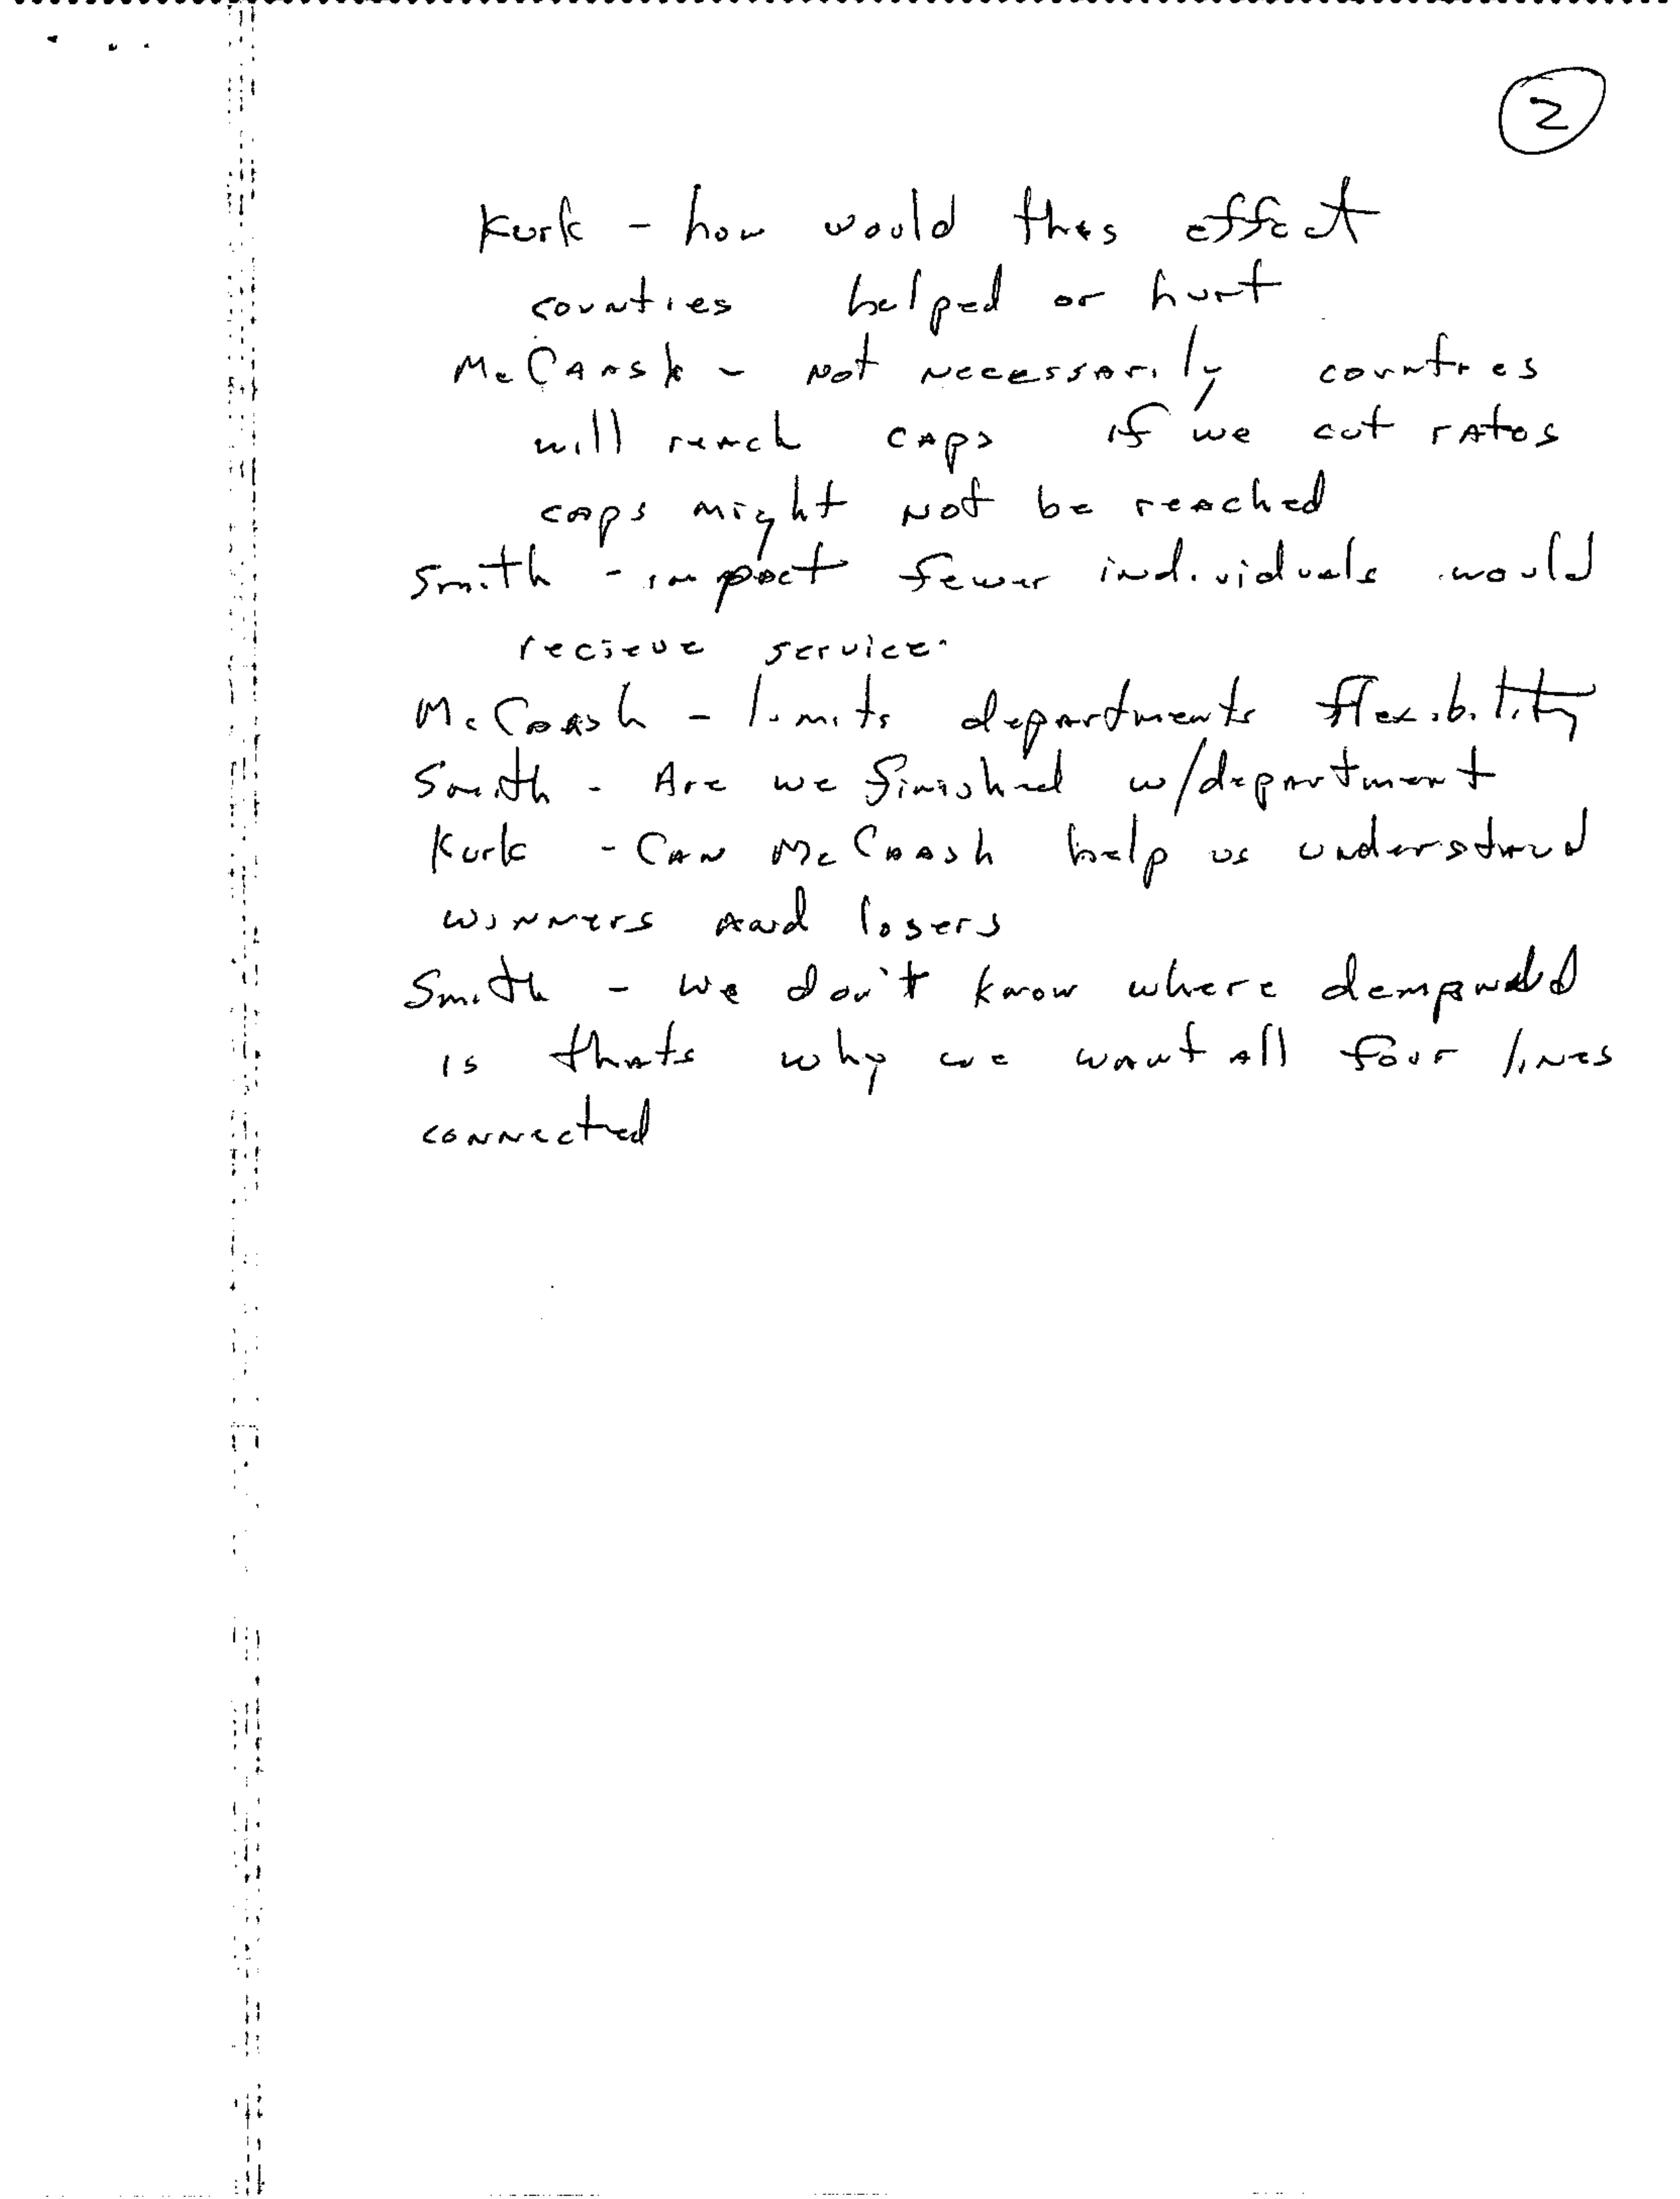 2
Kurk - how would this effect
counties helped or hurt
McCarsh - Not Necessarily counties
will reach caps if we cut rates
caps might Not be reached
Smith - impact fewer individuals would
recieve service.
McCarsh - limits departments flexibility
Smith - Are we finished w/department
Kurk - CAN McCarsh help us understand
WINNers And losers
Smith - we don't know where demand
is thats why we want all four lines
connected